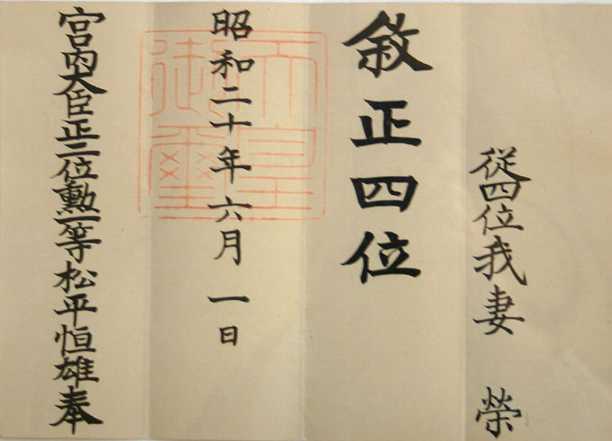 從四位我妻 榮
敘正四位
昭和二十年六月一日
天皇御璽
宮内大臣正三位勲一等松平恒雄奉